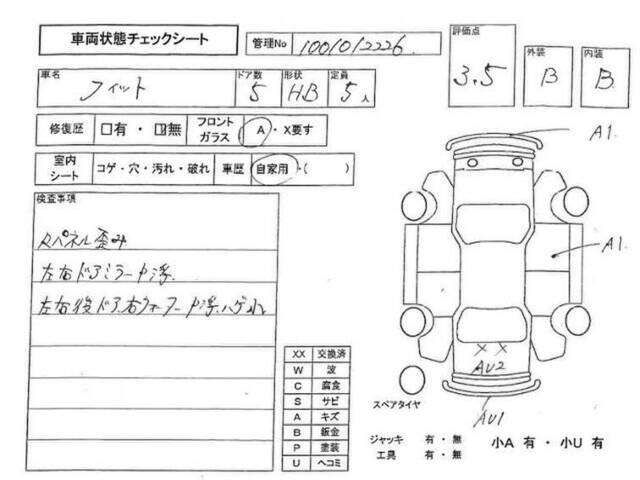 車両状態チェックシート
管理No 1001012226
評価点 3.5
外装 B
内装 B
車名 フィット
ドア数 5
形状 H.B
定員 5人
修復歴 □有・☑無
フロントガラス A・X要す
室内シート コゲ・穴・汚れ・破れ
車歴 自家用・( )
検査事項
Rパネル歪み
左右ドアミラーカ浮
左右後ドア.右
A1.
A1
XX
AU2
AU1
XX 交換済
W 波
C 腐食
S サビ
A キズ
B 鈑金
P 塗装
U ヘコミ
スペアタイヤ
ジャッキ 有・無
工具 有・無
小A 有・小U 有